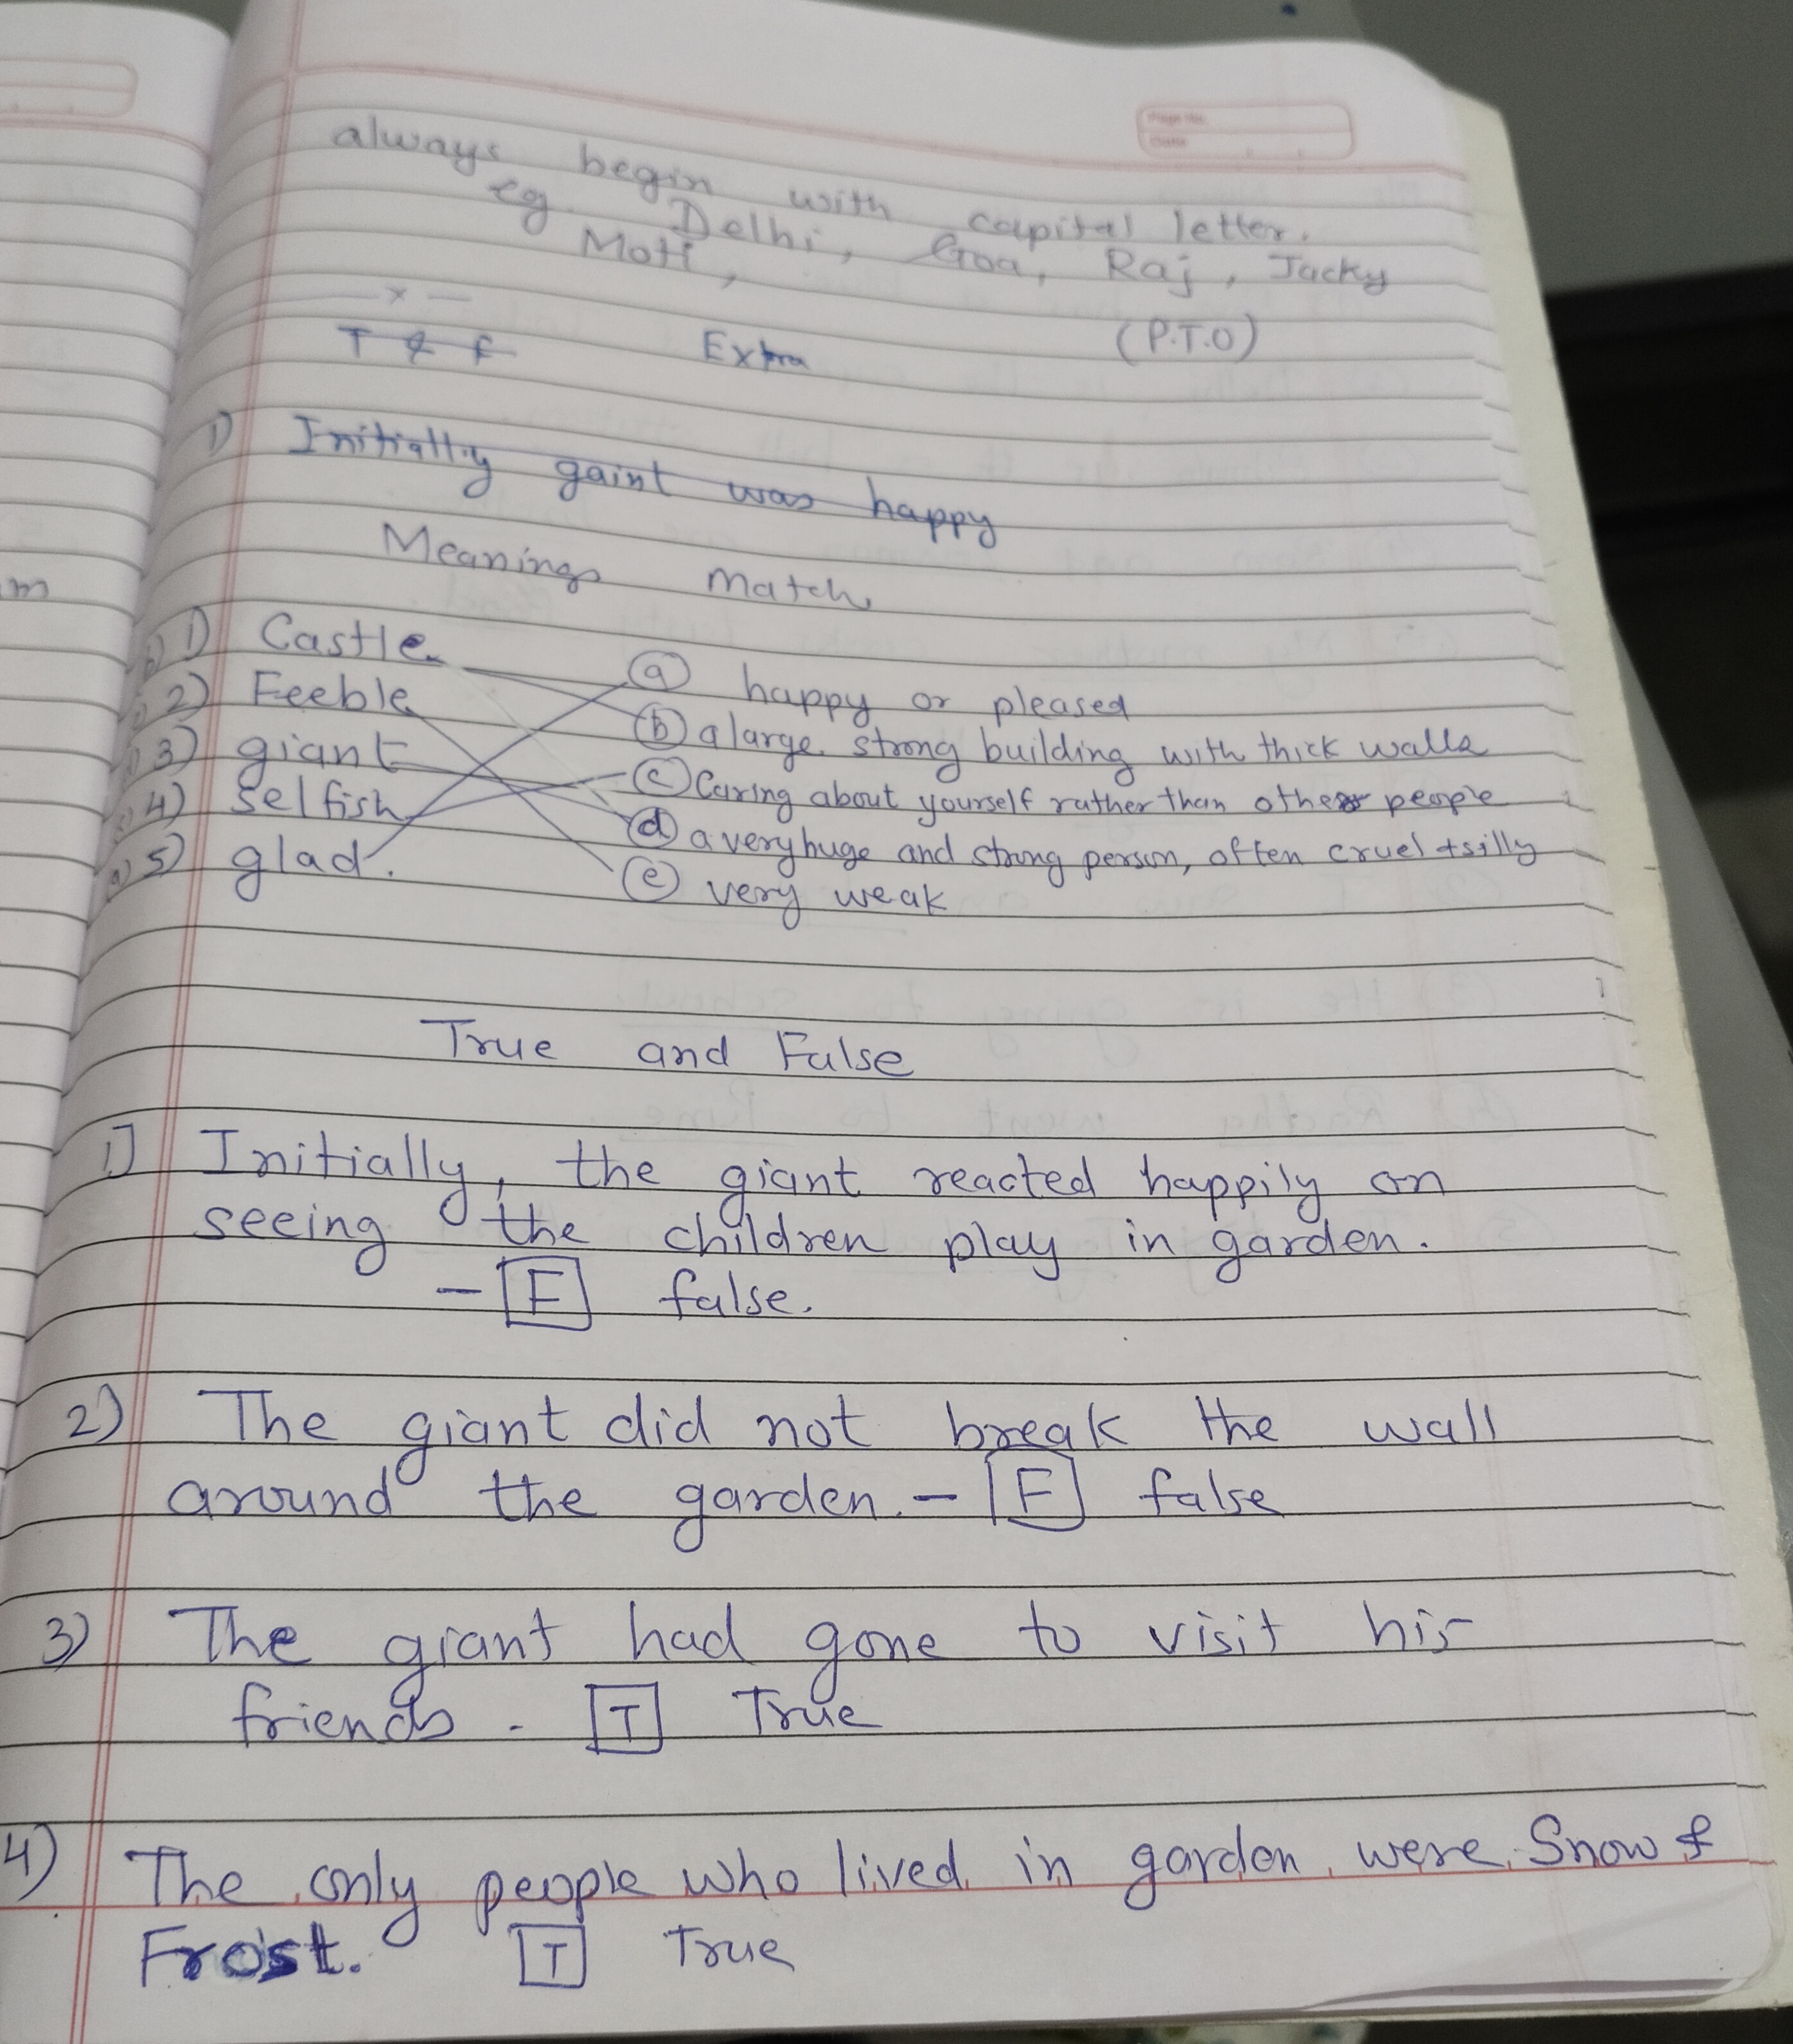 Page No.
Date
always begin with capital letter.
eg Delhi, Goa, Raj, Jacky
Moti,
— x — (P.T.O)
T & F Extra
1) Initially gaint was happy
Meanings Match
b) 1) Castle (a) happy or pleased
2) Feeble (b) a large strong building with thick walls
3) giant (c) Caring about yourself rather than other people
4) Selfish (d) a very huge and strong person, often cruel + silly
a) 5) glad. (e) very weak
True and False
1] Initially, the giant reacted happily on
seeing the children play in garden.
- [F] false.
2) The giant did not break the wall
around the garden. - [F] false
3) The giant had gone to visit his
friends. [T] True
4) The only people who lived in garden were Snow &
Frost. [T] True
m